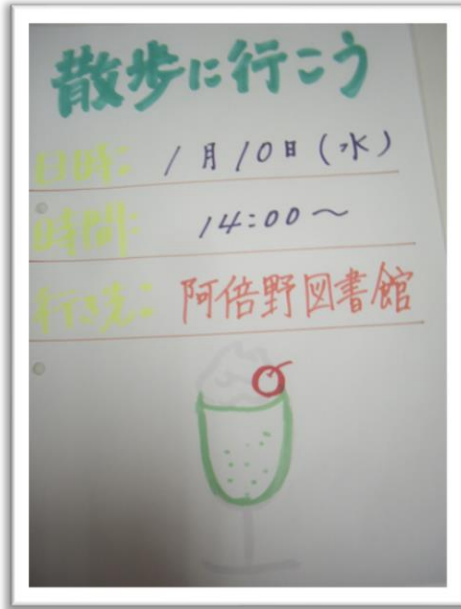 散歩に行こう
日時: 1月10日(水)
時間: 14:00〜
行き先: 阿倍野図書館